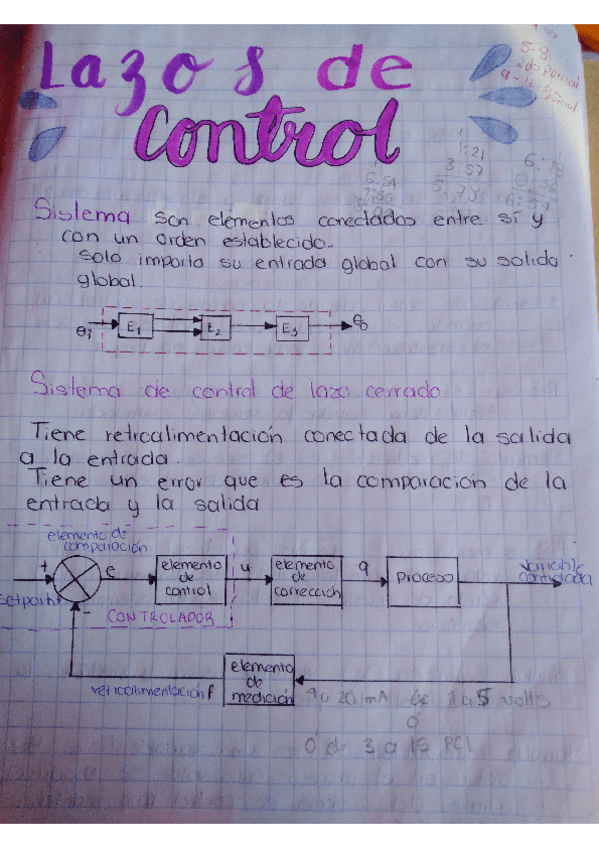 Lazos de
Control
5.8
6.54
1.21
3.57
5.78
Sistema son elementos conectados entre sí y
con un orden establecido.
Solo importa su entrada global con su salida
global.
θi E1 E2 E3 θo
Sistema de control de lazo cerrado
Tiene retroalimentación conectada de la salida
a la entrada.
Tiene un error que es la comparación de la
entrada y la salida
elemento de
comparación
+ e elemento de control u elemento de corrección q Proceso variable controlada
setpoint
-
CONTROLADOR
elemento de medición
retroalimentación f
4 a 20 mA 1 a 5 volts
o
o de 3 a 15 PCI